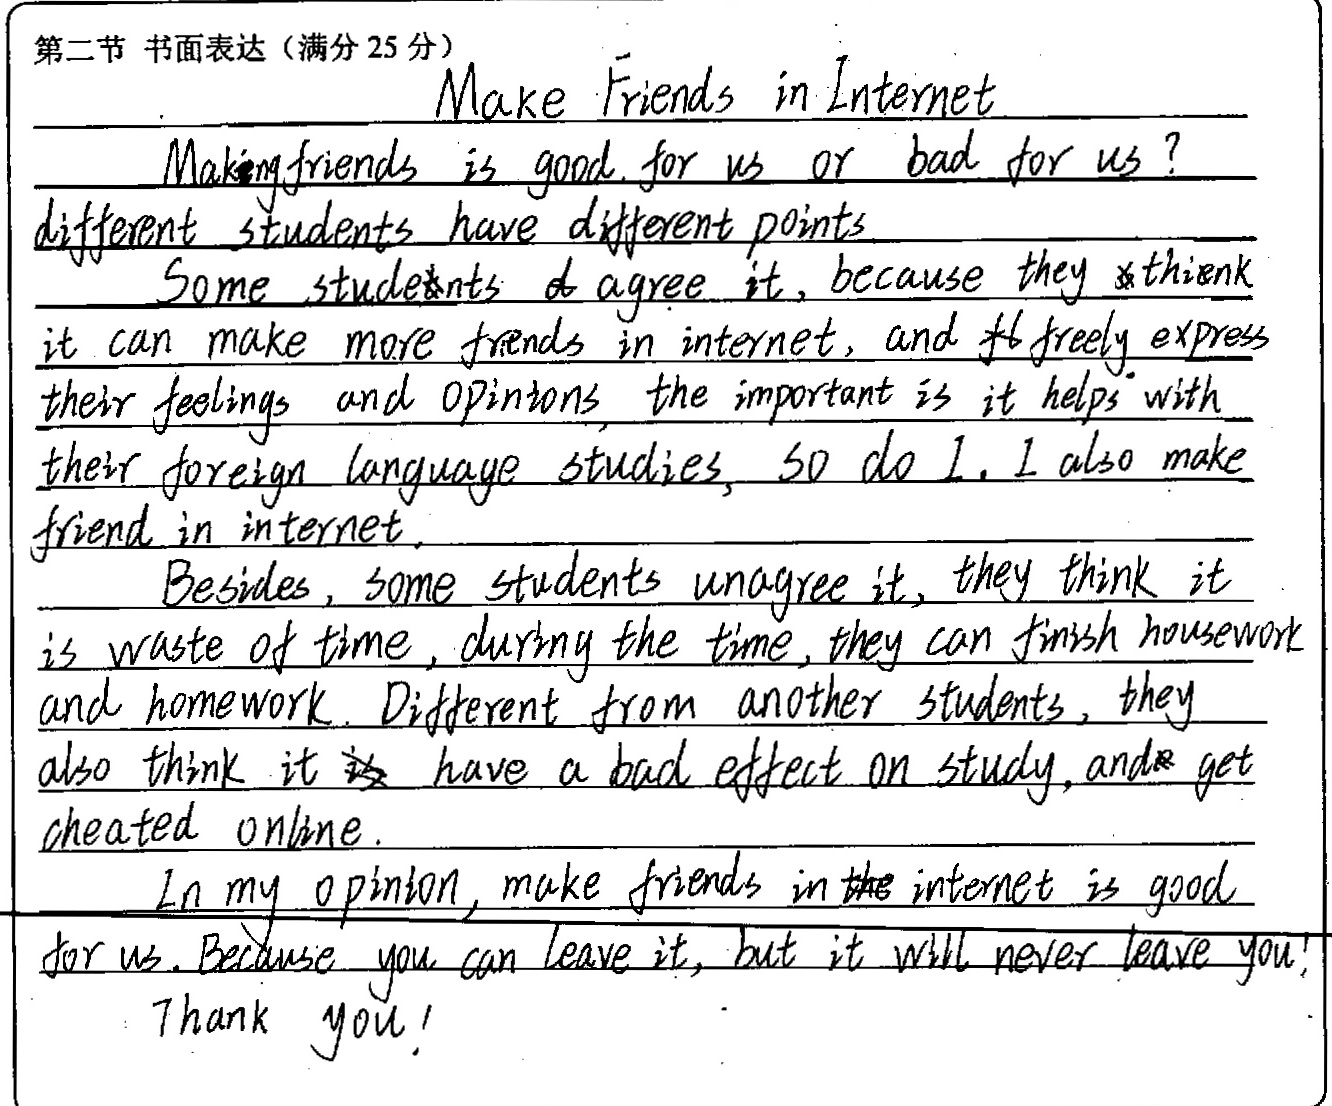 第二节 书面表达（满分 25 分）
Make Friends in Internet
Making friends is good for us or bad for us?
different students have different points
Some students agree it, because they think
it can make more friends in internet, and freely express
their feelings and opinions, the important is it helps with
their foreign language studies, so do I. I also make
friend in internet.
Besides, some students unagree it, they think it
is waste of time, during the time, they can finish housework
and homework. Different from another students, they
also think it have a bad effect on study, and get
cheated online.
In my opinion, make friends in internet is good
for us. Because you can leave it, but it will never leave you!
Thank you!